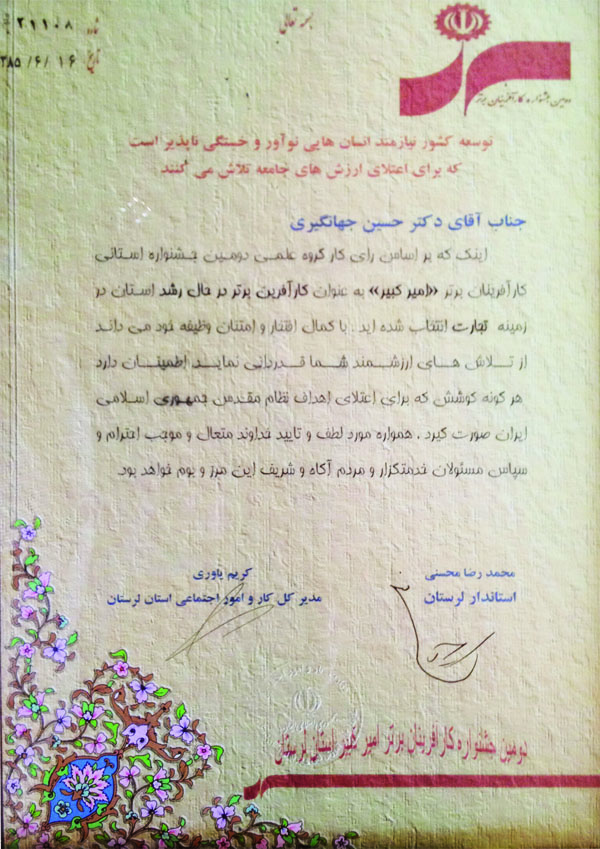 بسمه تعالی
شماره ۲۱۱۰۸
تاریخ ۳۸۵/۶/۱۶
دومین جشنواره کارآفرینان برتر
توسعه کشور نیازمند انسان هایی نوآور و خستگی ناپذیر است
که برای اعتلای ارزش های جامعه تلاش می کنند
جناب آقای دکتر حسین جهانگیری
اینک که بر اساس رای کار گروه علمی دومین جشنواره استانی
کارآفرینان برتر «امیر کبیر» به عنوان کارآفرین برتر در حال رشد استان در
زمینه تجارت انتخاب شده اید . با کمال افتخار و امتنان وظیفه خود می داند
از تلاش های ارزشمند شما قدردانی نماید. اطمینان دارد
هر گونه کوشش که برای اعتلای اهداف نظام مقدس جمهوری اسلامی
ایران صورت گیرد . همواره مورد لطف و تایید خداوند متعال و موجب احترام و
سپاس مسئولان خدمتگزار و مردم آگاه و شریف این مرز و بوم خواهد بود.
محمد رضا محسنی
استاندار لرستان
کریم یاوری
مدیر کل کار و امور اجتماعی استان لرستان
دومین جشنواره کارآفرینان برتر امیر کبیر استان لرستان